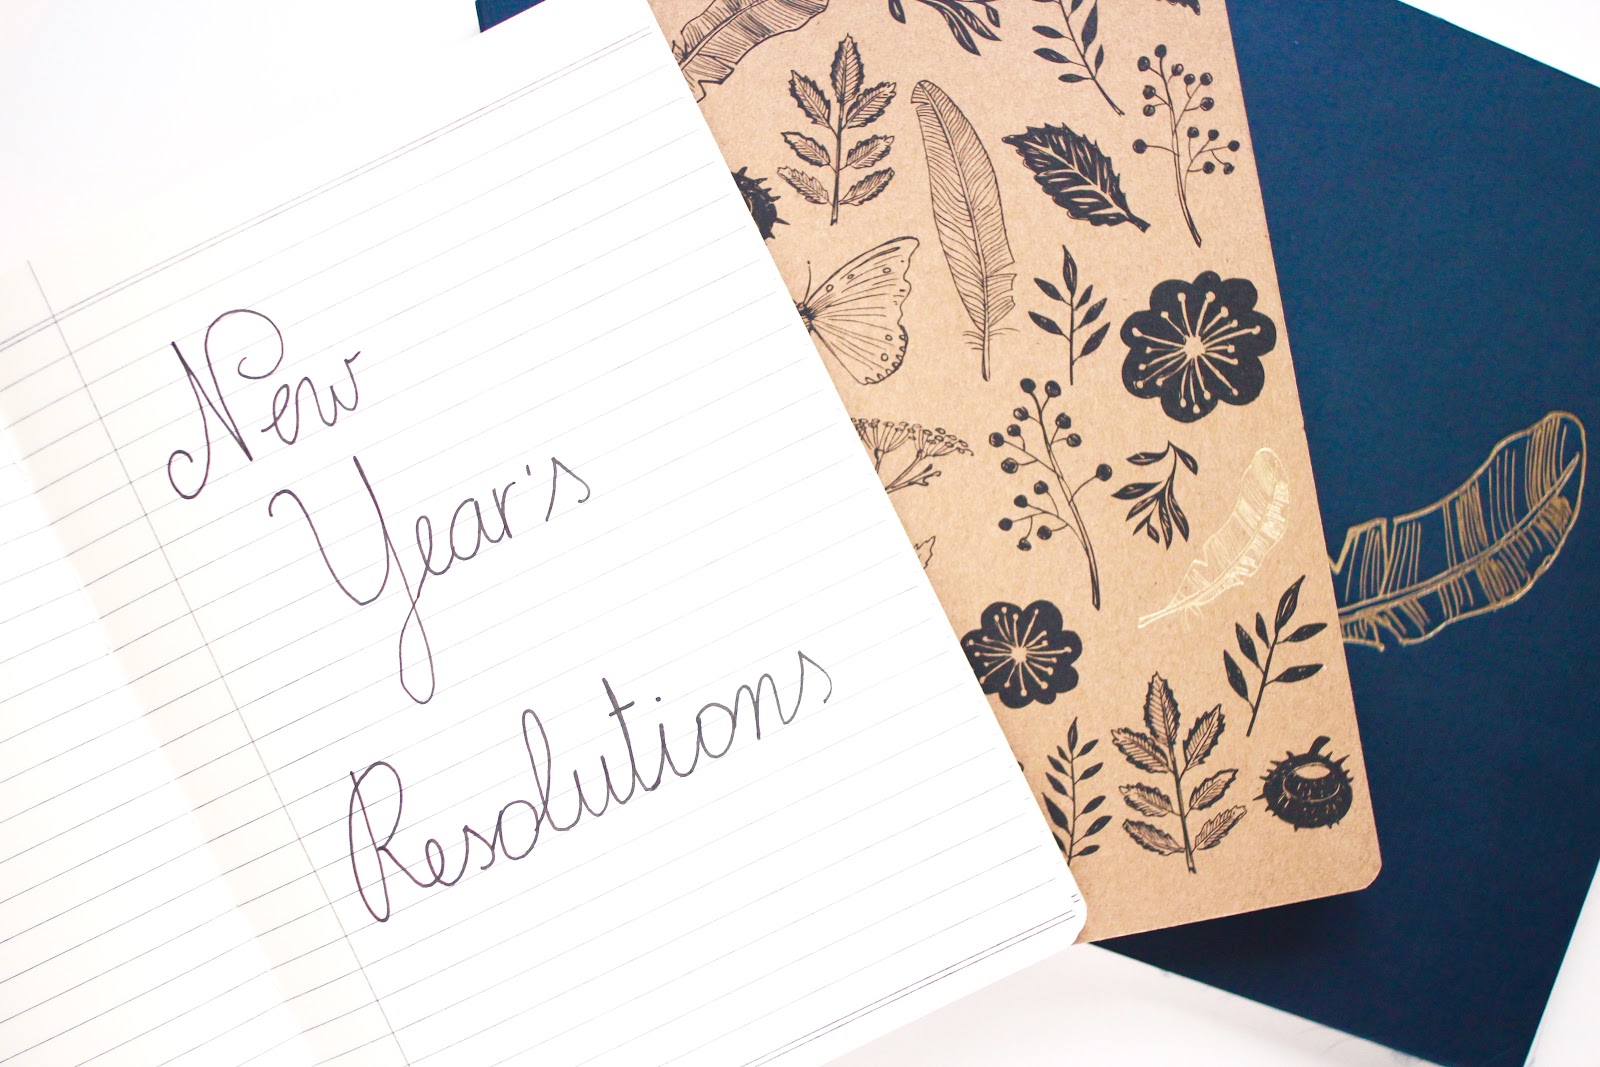 New
Year's
Resolutions